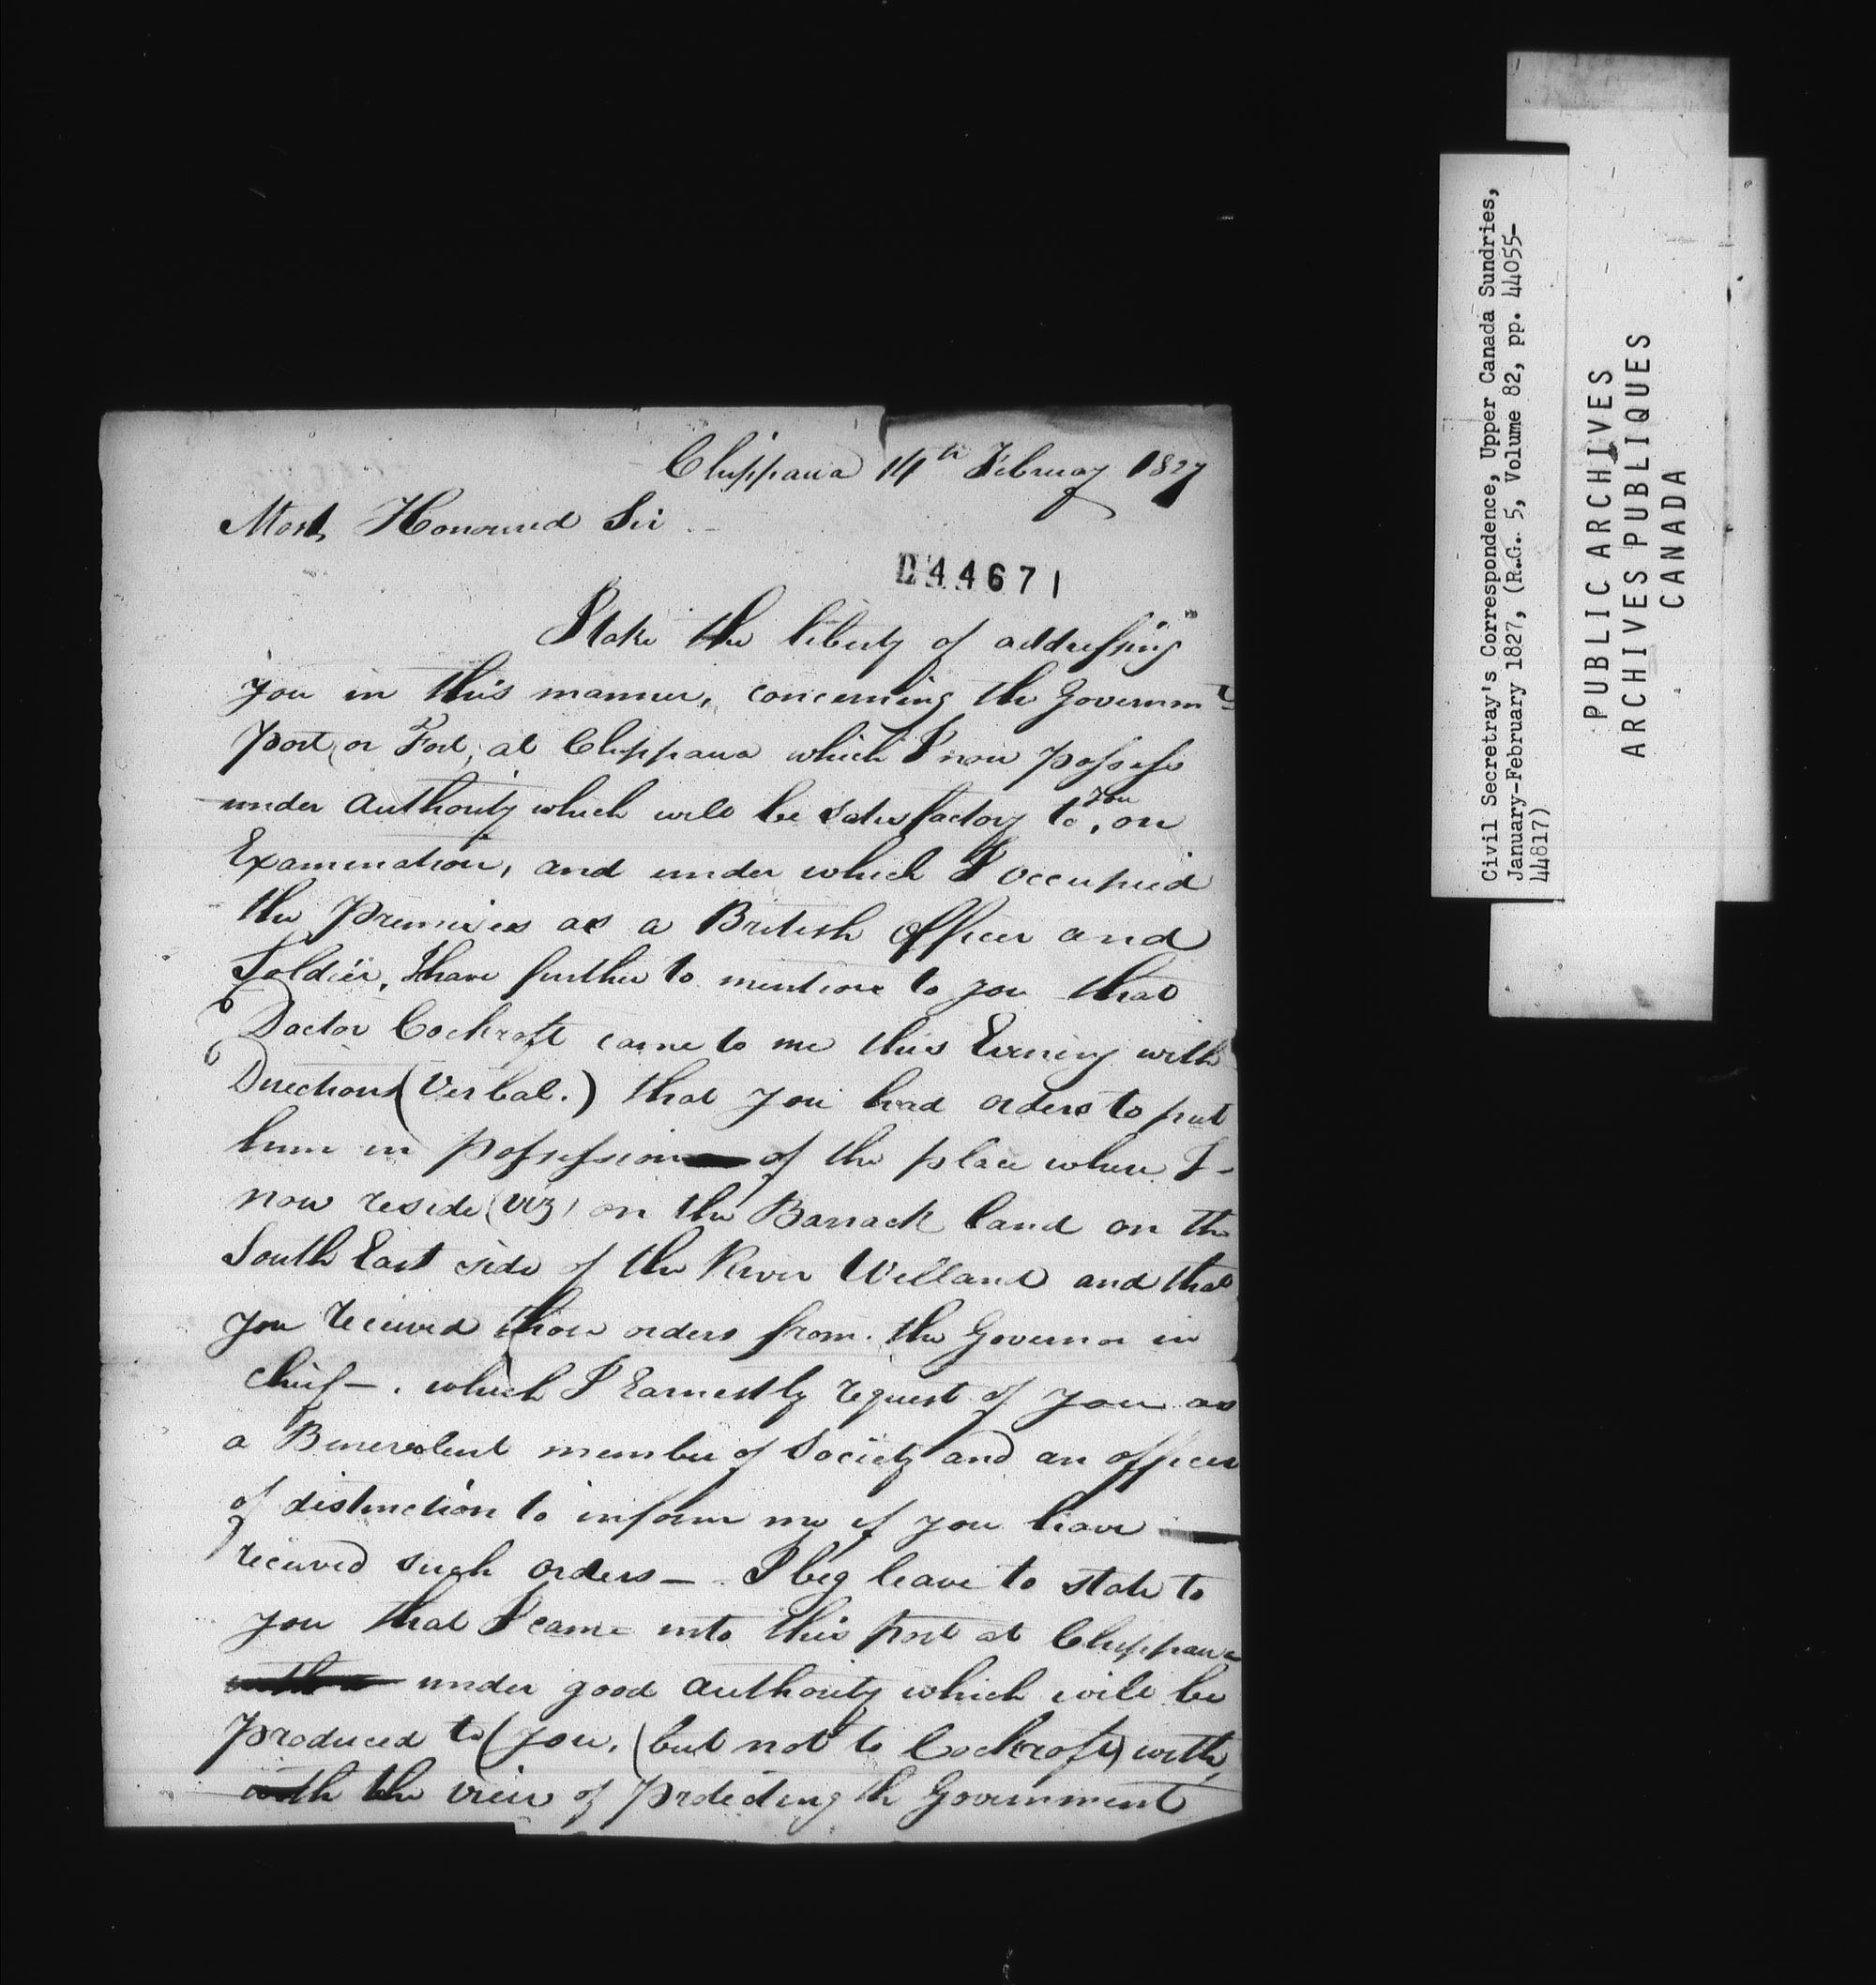 Chippawa 14th February 1827
Most Honoured Sir
D44671
I take the liberty of addressing
you in this manner, concerning the Governmt
Post, or Fort, at Chippawa which I now possess
under authority which will be satisfactory to you, on
Examination, and under which I occupied
the Premises as a British Officer and
Soldier, I have further to mention to you that
Doctor Cockroft came to me this Evening with
Directions (Verbal.) that you had orders to put
him in possession of the place where I -
now reside (viz) on the Barrack land on the
South East side of the River Welland and that
you received those orders from the Governor in
chief - . which I Earnestly request of you as
a Benevolent member of Society and an officer
of distinction to inform me if you have
received such orders - I beg leave to state to
you that I came into this post at Chippawa
under good authority which will be
produced to (you, (but not to Cockroft) with,
with the view of Protecting th Government
Civil Secretray's Correspondence, Upper Canada Sundries,
January-February 1827, (R.G. 5, Volume 82, pp. 44055-
44817)
PUBLIC ARCHIVES
ARCHIVES PUBLIQUES
CANADA